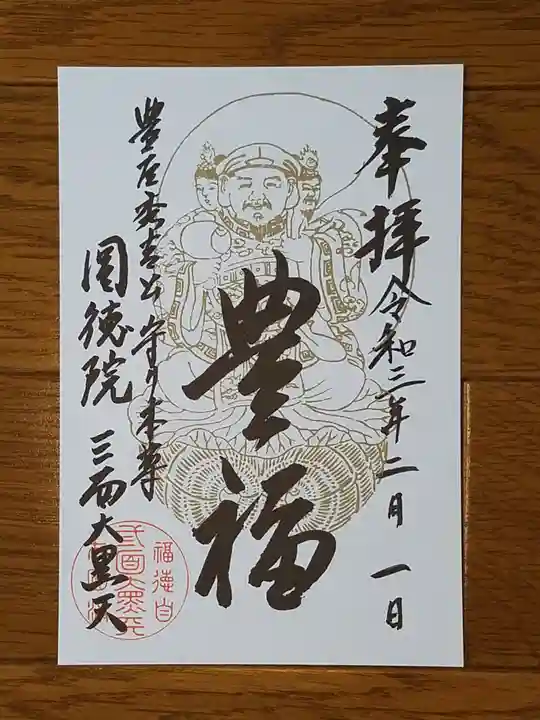 奉拝
令和三年二月一日
豊福
豊臣秀吉公守り本尊
圓徳院 三面大黒天
福徳自
三面大黒天